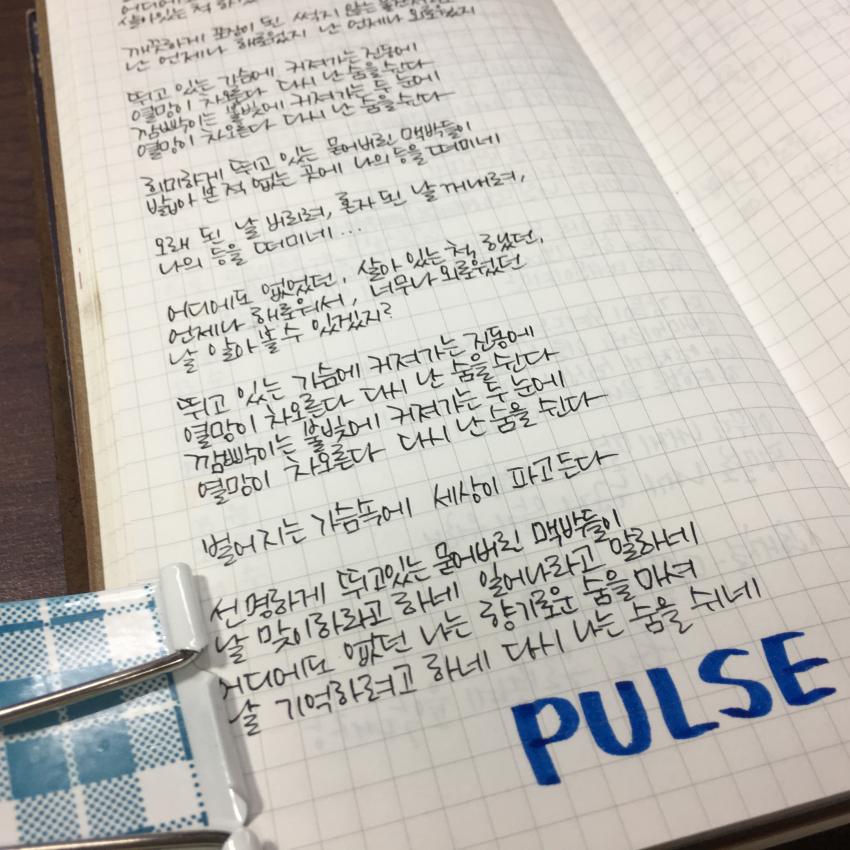 어디에
살아있는 척 하
깨끗하게 포장이 된 썩지 않는
난 언제나 해로웠지 난 언제나 외로웠지
뛰고 있는 가슴에 커져가는 진동에
열망이 차오른다 다시 난 숨을 쉰다
깜빡이는 불빛에 커져가는 두 눈에
열망이 차오른다 다시 난 숨을 쉰다
희미하게 뛰고 있는 묻어버린 맥박들이
밟아 본 적 없는 곳에 나의 등을 떠미네
오래 된 날 버리려, 혼자 된 날 꺼내려,
나의 등을 떠미네...
어디에도 없었던, 살아 있는 척 했던,
언제나 해로워서, 너무나 외로웠던
날 알아 볼 수 있겠지?
뛰고 있는 가슴에 커져가는 진동에
열망이 차오른다 다시 난 숨을 쉰다
깜빡이는 불빛에 커져가는 두 눈에
열망이 차오른다 다시 난 숨을 쉰다
벌어지는 가슴속에 세상이 파고든다
선명하게 뛰고있는 묻어버린 맥박들이
날 맞이하라고 하네 일어나라고 말하네
어디에도 없던 나는 향기로운 숨을 마셔
날 기억하려고 하네 다시 나는 숨을 쉬네
PULSE